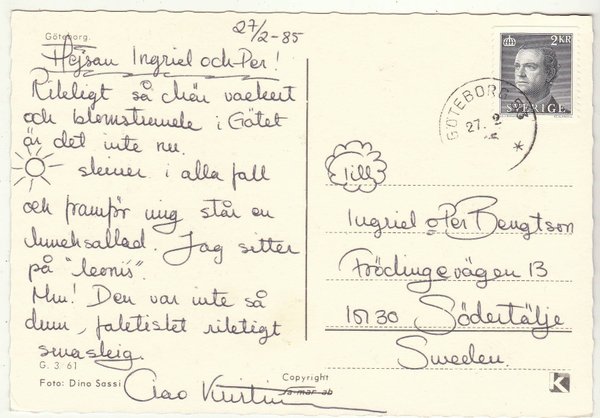 27/2-85
Göteborg.
Hejsan Ingrid och Per!
Riktigt så här vackert
och blommande i Götet
är det inte nu.
skiner i alla fall
och framför mig står en
lunchsallad. Jag sitter
på "leonis".
Mm! Den var inte så
dum, faktiskt riktigt
smaskig.
G. 3/61
Foto: Dino Sassi
Ciao Kristin
Copyright
2 KR
SVERIGE
GÖTEBORG
27. 2
Till
Ingrid o Per Bengtson
Frödingevägen 13
151 30 Södertälje
Sweden.
K